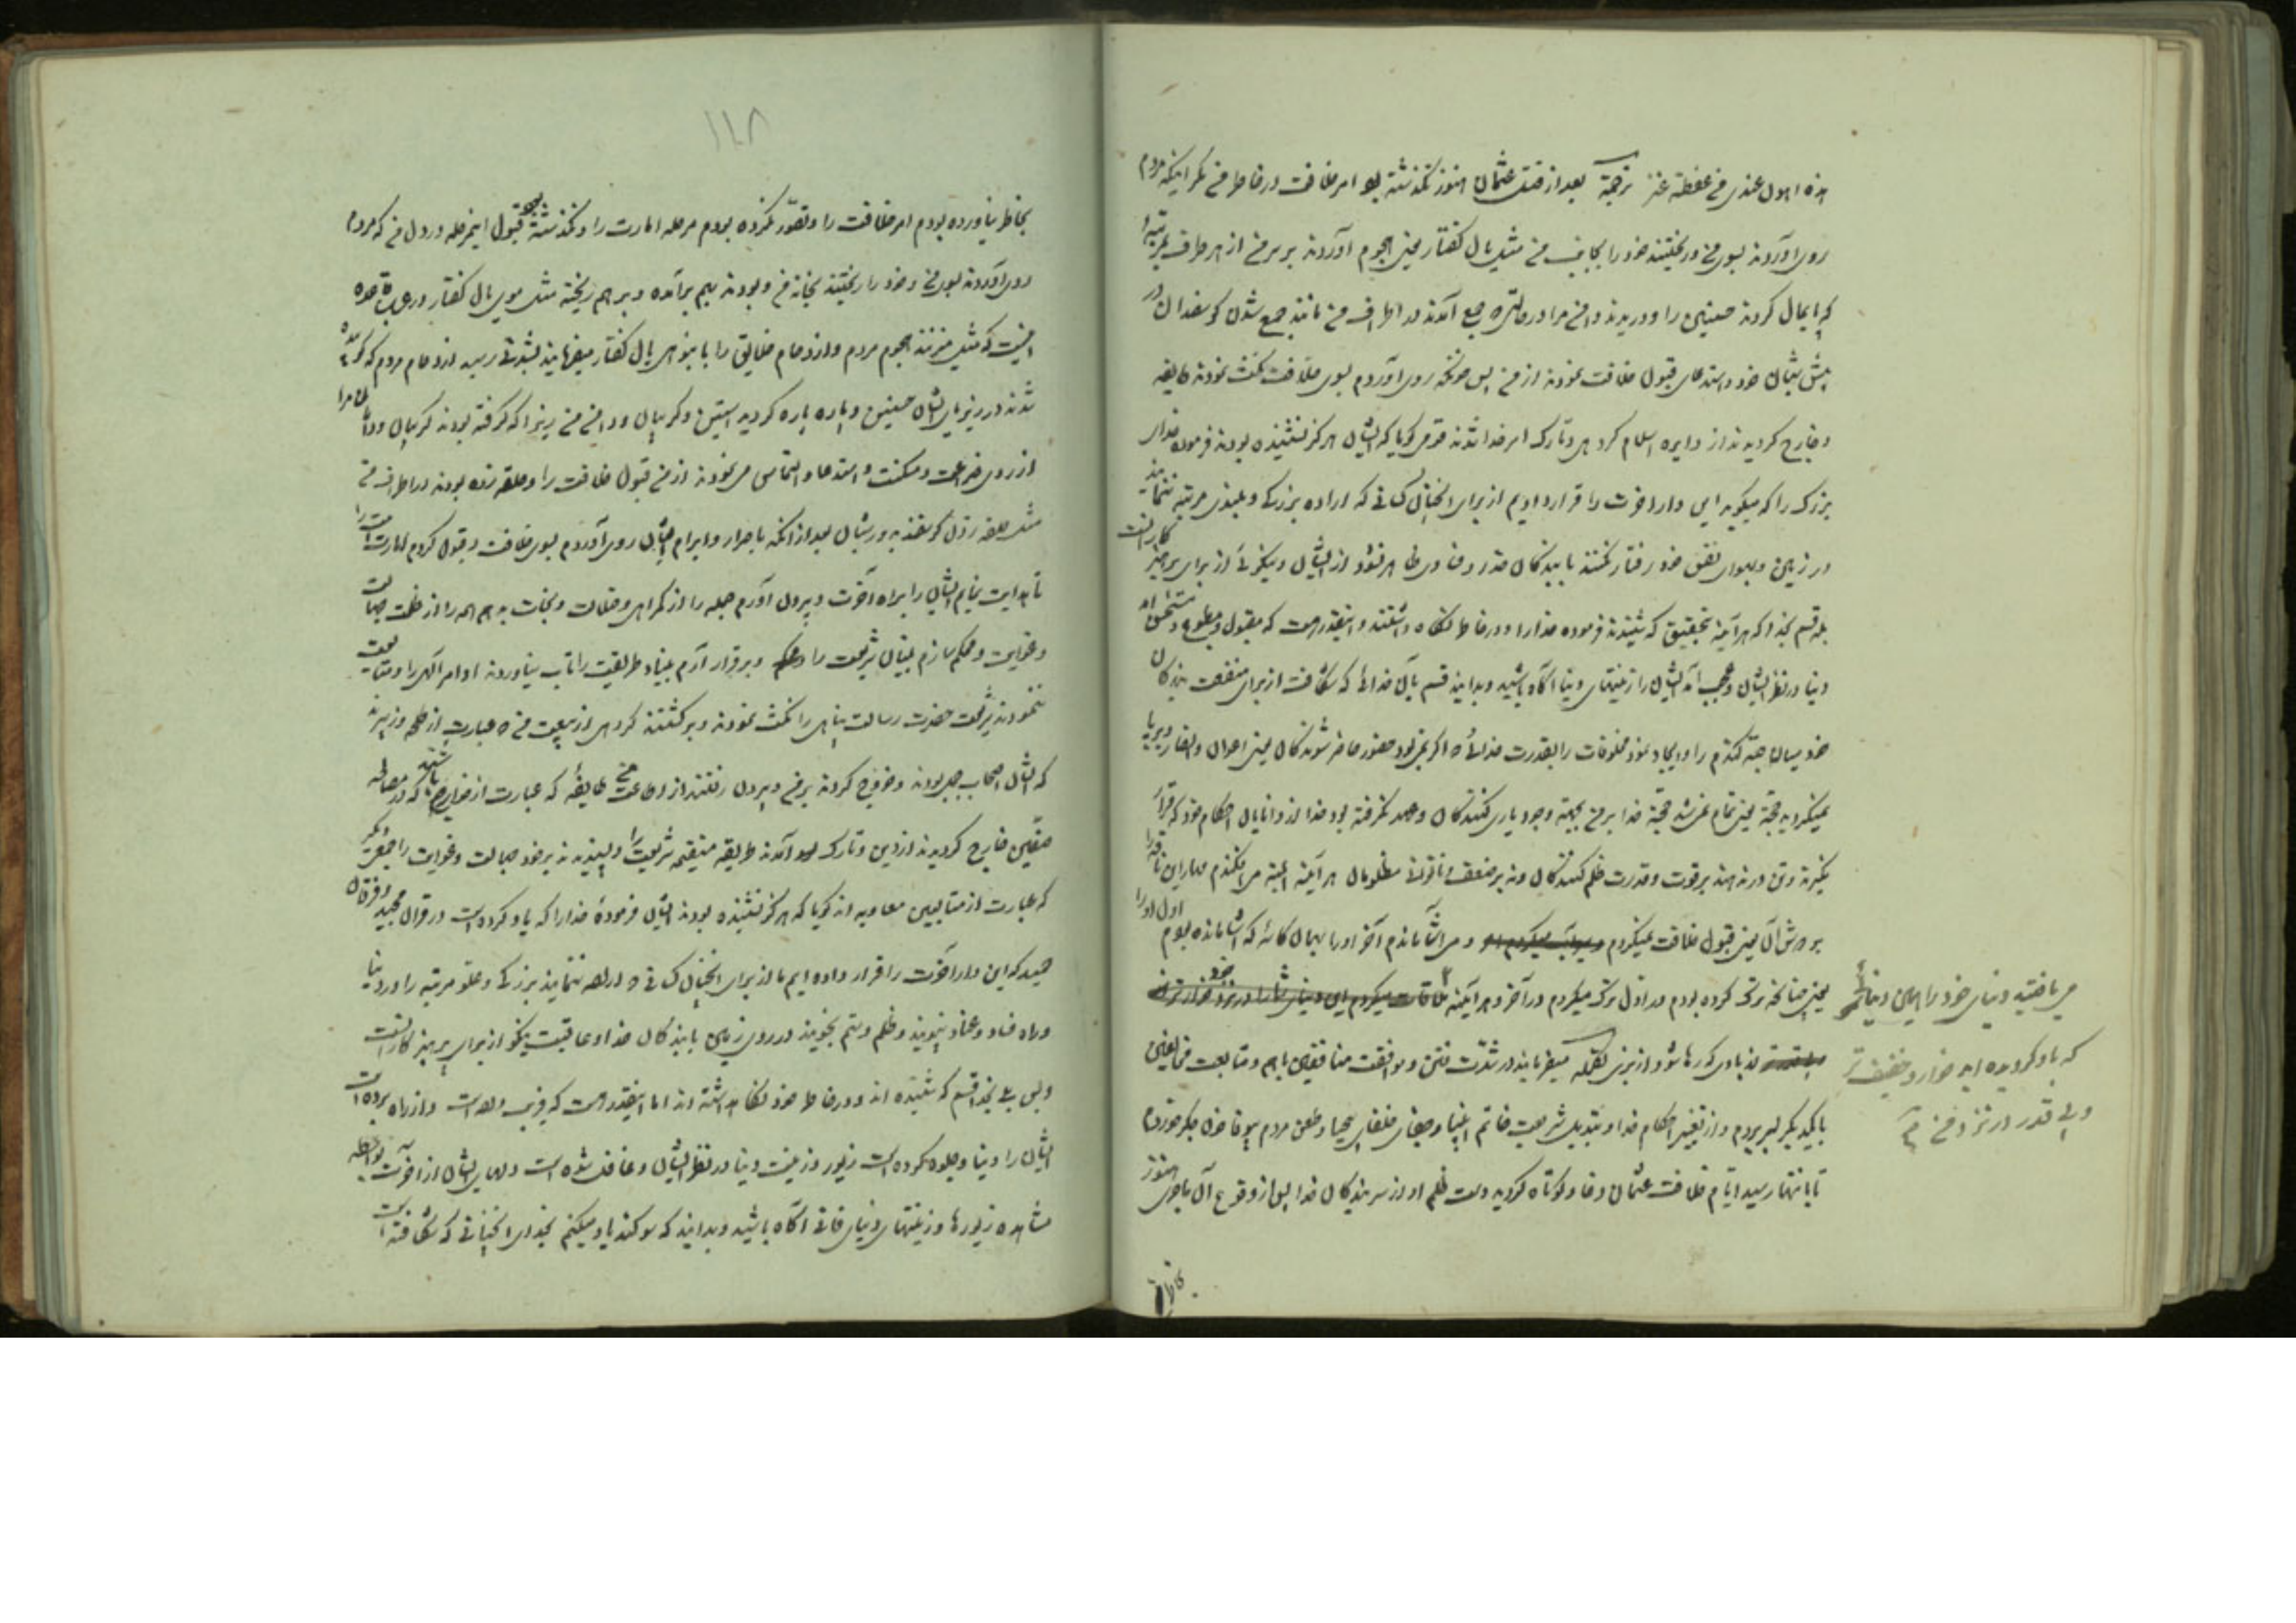 هذه اهون عندی من عفطة عنز ترجمة بعد از قتل عثمان هنوز نگذشته بود امر خلافت در خاطر من مگر اینکه مردم
روی آوردند بسوی من و ریختند خود را بجانب من مثل یال کفتار یعنی هجوم آوردند بر سر من از هر طرف بمرتبه
که پایمال کردند حسنین را و دریدند دامن مرا در حالتی که جمع آمدند در اطراف من مانند جمع شدن گوسفندان در
پیش شبان خود و استدعای قبول خلافت نمودند از من پس چونکه روی آوردم بسوی خلافت نکث نمودند طایفه
و خارج گردیدند از دایره اسلام گروهی و تارک امر خدا شدند قومی گویا که ایشان هرگز نشنیده بودند فرموده خدای
بزرگ را که میگوید این دار اخرت را قرار دادیم از برای انچنان کسانی که اراده بزرگی و بلندی مرتبه ننمایند
در زمین و بهوای نفس خود رفتار نکنند با بندگان خدا و فسادی ظاهر نشود از ایشان و نیکوئی از برای پرهیزکارانست
بلی قسم بخدا که هر آینه بتحقیق که شنیدند فرموده خدا را و در خاطر نگاه داشتند و اینقدر هست که مقبول و مطبوع و مستحسن آمد
دنیا در نظر ایشان و عجب آمد ایشان را زینتهای دنیا آگاه باشید و بدانید قسم بآن خدائی که شکافت از برای منفعت بندگان
خود میان حبه گندم را و ایجاد نمود مخلوقات را بقدرت خدائی که اگر نمی‌بود حضور حاضر شوندگان یعنی اعوان و انصار و برپا
نمیگردید حجة یعنی تمام نمی‌شد حجة خدا بر من بجهة وجود یاری کنندگان و عهد نگرفته بود خدا از دانایان احکام خود که قرار
نگیرند و تن در ندهند بر قوت و قدرت ظلم کنندگان و نه بر ضعف و ناتوانی مظلومان هر آینه البته می‌افکندم مهار این ناقه را
بر دوش آن یعنی قبول خلافت نمیکردم و می‌آشامانیدم آخر او را بهمان کاسه که آشامانده بودم اول او را
یعنی چنانچه ترک کرده بودم در اول ترک میکردم در آخر و هر آینه
بایکدیگر بسر بردم و از تغییر احکام خدا و تبدیل شریعت خاتم انبیا و جفای خلفای بیحیا و طعن مردم بیوفا خون جگر خوردم
تا بانتها رسید ایام خلافت عثمان دغا و کوتاه گردید دست ظلم او از سر بندگان خدا پس از وقوع آن ماجری هنوز
می‌یافتید دنیای خود را این دنیائی
که یاد کردیده اید خوار و خفیف تر
و بی قدر در نزد من
بخاطر
۱۱۸
بخاطر نیاورده بودم امر خلافت را و تصور نکرده بودم مرحله امارت را و نگذشته بود قبول اینمرحله در دل من که مردم
روی آوردند بسوی من و خود را ریختند بخانه من و بودند بهم برآمده و بر هم ریخته مثل موی یال کفتار و در عرب قاعده
اینست که مثل میزنند هجوم مردم و ازدحام خلایق را بانبوهی یال کفتار میفرمایند بشدتی رسید ازدحام مردم که
شدند در زیر پای ایشان حسنین و پاره پاره گردید آستین و گریبان و دامن من زیرا که گرفته بودند گریبان و دامان مرا
از روی ضراعت و مسکنت و استدعا و التماس می‌نمودند از من قبول خلافت را و حلقه زده بودند در اطراف من
مثل حلقه زدن گوسفند بدور شبان بعد از آنکه باصرار و ابرام ایشان روی آوردم بسوی خلافت و قبول کردم امارت
تا هدایت نمایم ایشان را براه آخرت و بیرون آورم جمله را از گمراهی و ضلالت و نجات بدهم همه را از ظلمت جهالت
و غوایت و محکم سازم بنیان شریعت را و برقرار آرم بنیاد طریقت را تاب نیاوردند اوامر آلهی را و متابعت
ننمودند شریعت حضرت رسالت پناهی را نکث نمودند و برگشتند گروهی از بیعت من که عبارت از طلحه و زبیرند
که ایشان اصحاب جمل بودند و خروج کردند بر من و بیرون رفتند از اطاعت من طایفه که عبارت از خوارج باشند که در مصاف
صفین خارج گردیدند از دین و تارک آمدند طریقه مستقیمه شریعت را و پسندیدند بر خود ضلالت و غوایت را جمعی دیگر
که عبارت از متابعین معاویه اند گویا که هرگز نشنیده بودند ایشان فرمودهٔ خدا را که یاد کرده است در قران مجید و فرقان
حمید که این دار آخرت را قرار داده ایم ما از برای انچنان کسانی که اراده ننمایند بزرگی و علو مرتبه را در دنیا
و راه فساد و عناد نپویند و ظلم و ستم نجویند در روی زمین با بندگان خدا و عاقبت نیکو از برای پرهیزکارانست
و پس بلی بخدا قسم که شنیده اند و در خاطر خود نگاه داشته اند اما اینقدر هست که فریب داده است و از راه برده است
ایشان را دنیا و جلوه کرده است زیور و زینت دنیا در نظر ایشان و غافل شده است دلهای ایشان از آخرت بواسطه
مشاهده زیورها و زینتهای دنیای فانی آگاه باشید و بدانید که سوگند یاد میکنم بخدای انچنانی که شکافته است